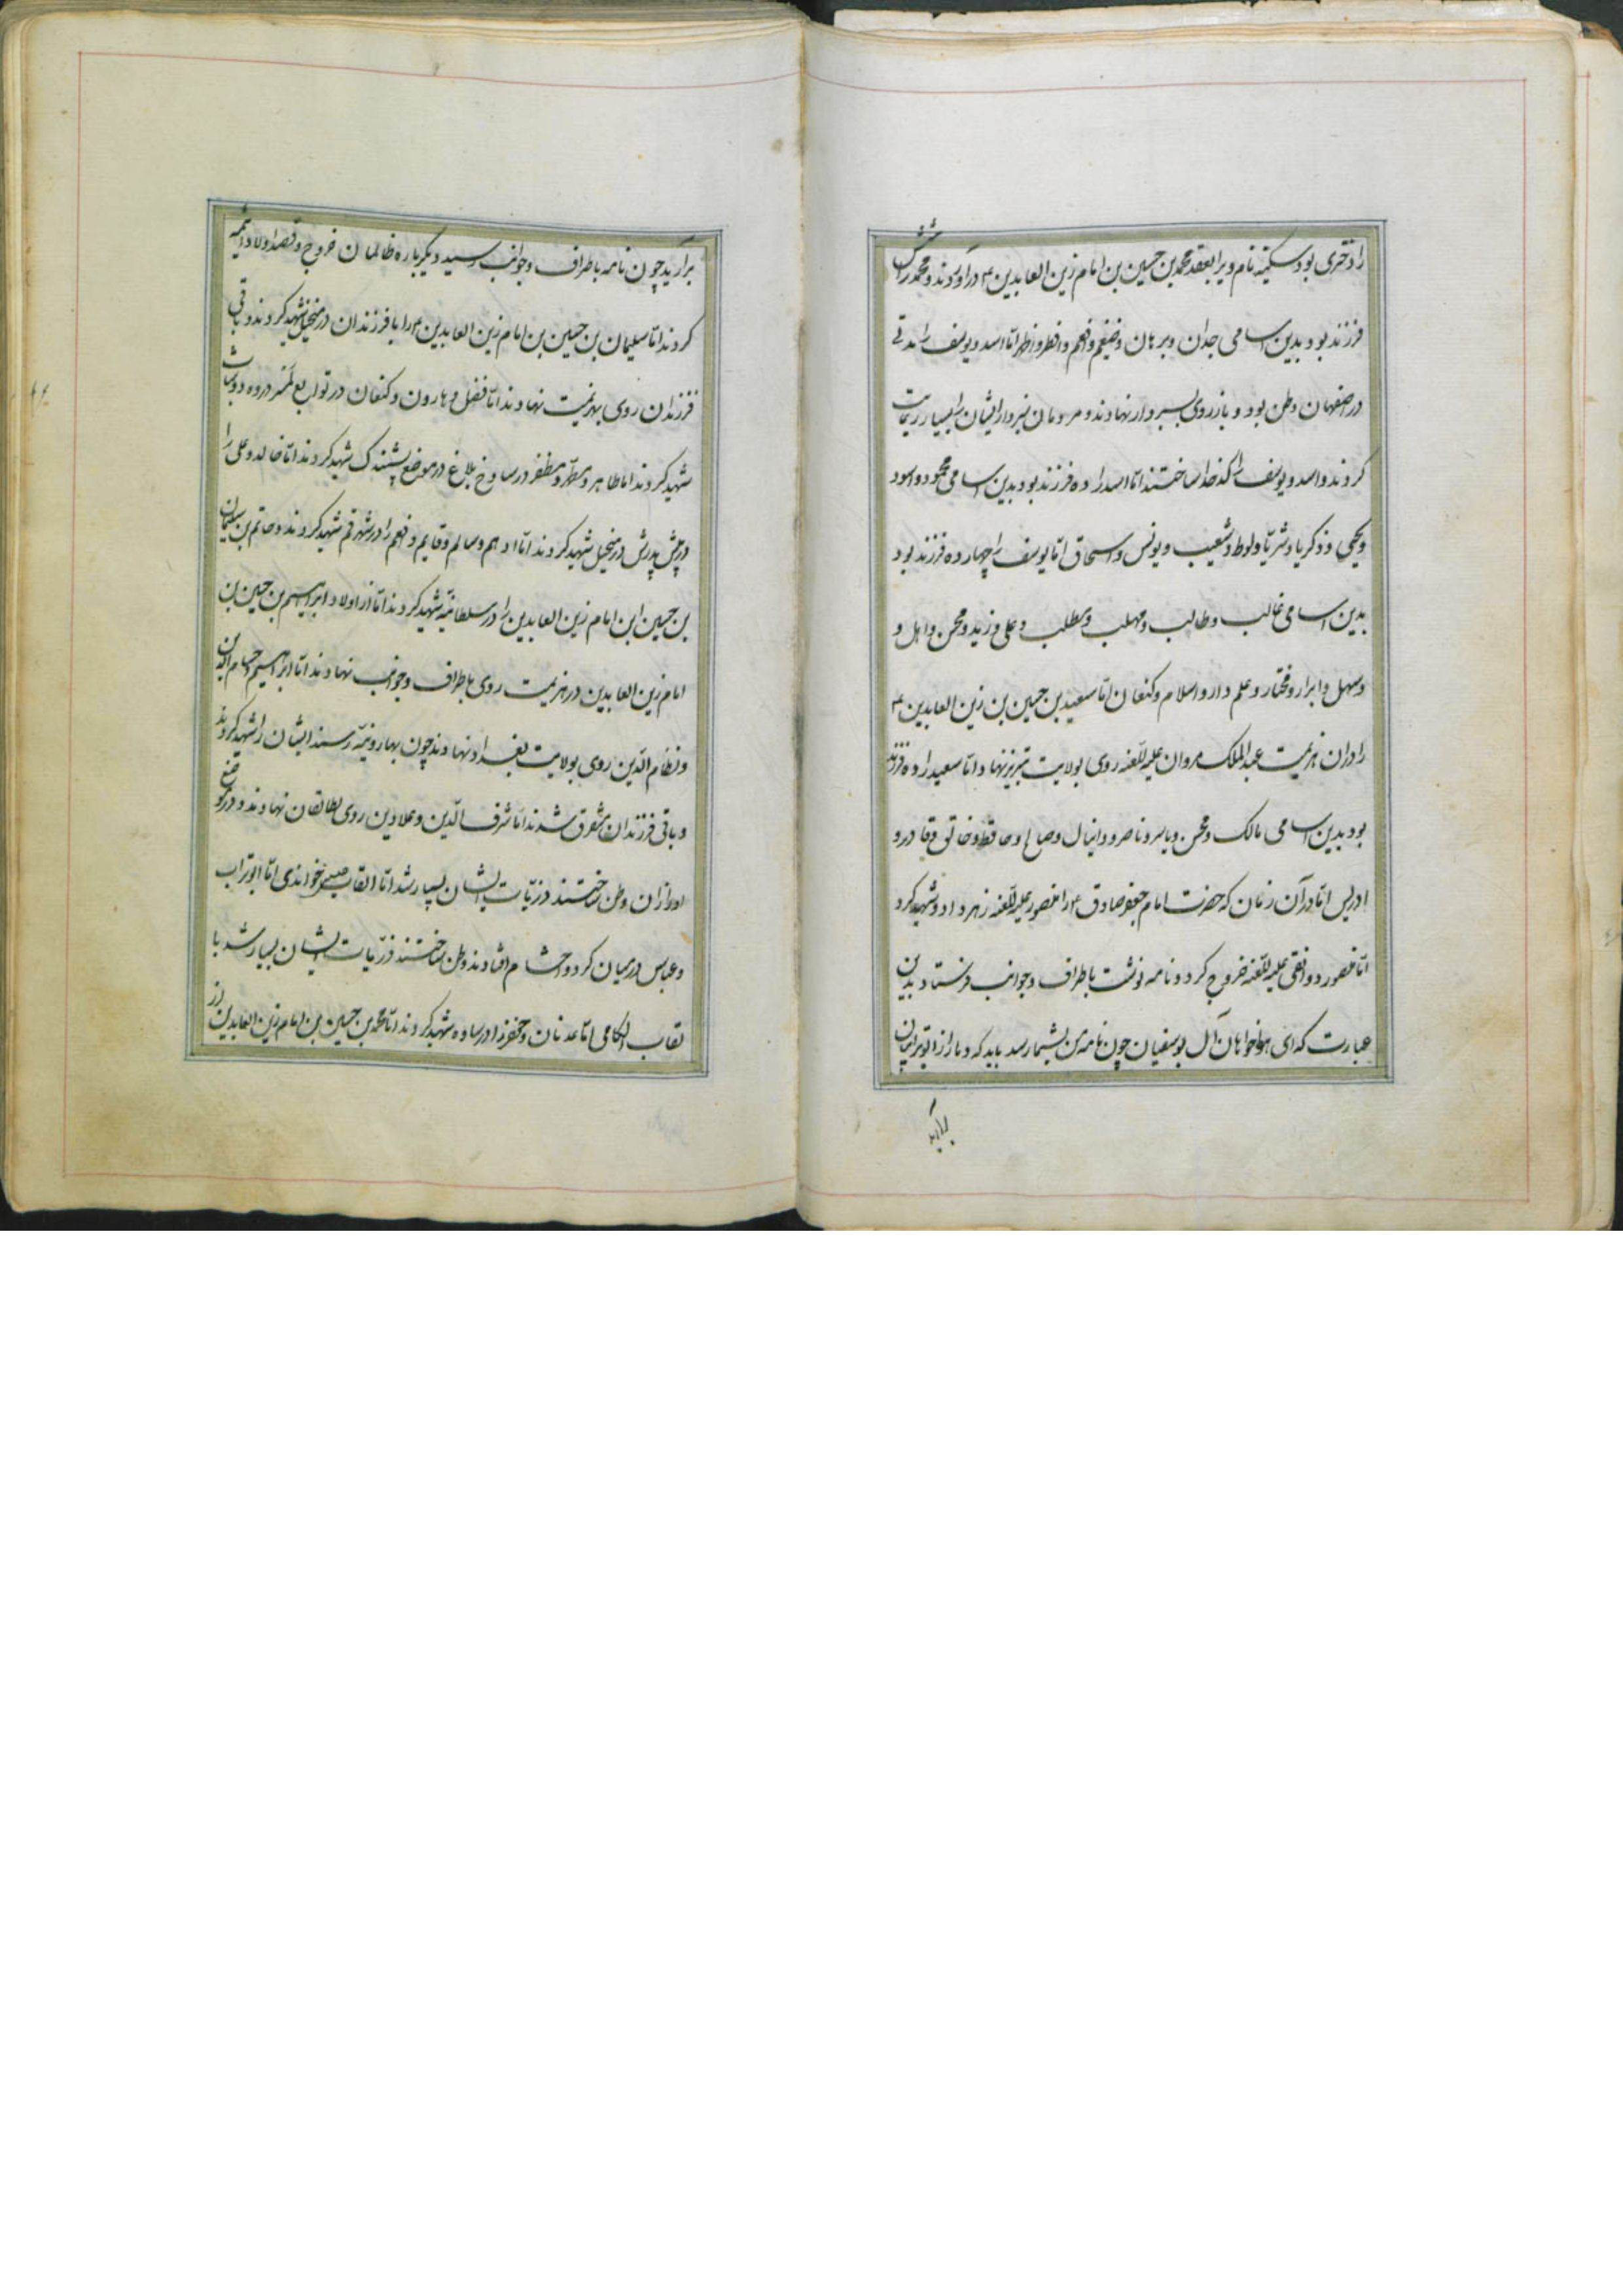 را دختری بود سکینه نام ویرا بعقد محمد بن حسین بن امام زین العابدین ع در آوردند و محمد را شش
فرزند بود بدین اسامی جدان و برهان و ضیغم و افهم و افطر و اظهر اما اسد و یوسف را مدتی
در اصفهان وطن بود و باز روی بسبزوار نهادند و مردمان سبزوار ایشان را بسیار رعایت
کردند و اسد و یوسف را کدخدا ساختند اما اسد را ده فرزند بود بدین اسامی محمود و اسود
و یحیی و زکریا و شریا و لوط و شعیب و یونس و اسحاق اما یوسف را چهارده فرزند بود
بدین اسامی غالب و طالب و مهلب و مطلب و علی و زید و محسن و اهل و
و سهل و ابرار و مختار و علم دار و اسلام و کنعان اما سعید بن حسین بن زین العابدین ع
را دران هزیمت عبد الملک مروان علیه اللعنه روی بولایت تبریز نهاد و اما سعید را ده فرزند
بود بدین اسامی مالک و محسن و یاسر و ناصر و دانیال و صالح و حافظ و خالق و قادر و
ادریس اما در آن زمان که حضرت امام جعفر صادق ع را منصور علیه اللعنه زهر داد و شهید کرد
اما منصور دوانقی علیه اللعنه خروج کرد و نامه نوشت باطراف و جوانب فرستاد بدین
عبارت که ای هواخواهان آل بوسفیان چون نامه من بشما رسد باید که دمار از ابوترابیان
برآرید
برآرید چون نامه باطراف و جوانب رسید دیگر باره ظالمان خروج و قصد اولاد ائمه
کردند اما سلیمان بن حسین بن امام زین العابدین ع را با فرزندان در منجیل شهید کردند و باقی
فرزندان روی بهزیمت نهادند اما فضل و هارون و کنعان در توابع
شهید کردند اما طاهر و مطهر و مظفر در ساوخ بلاغ در موضع پشندک شهید کردند اما خالد و علی را
در پیش پدرش در منجیل شهید کردند اما ادهم و سالم و قایم و افهم را در شهر قم شهید کردند و حاتم بن سلیمان
بن حسین ابن امام زین العابدین را در سلطانیه شهید کردند اما از اولاد ابراهیم بن حسین بن
امام زین العابدین در هزیمت روی باطراف و جوانب نهادند اما ابراهیم حسام الدین
و نظام الدین روی بولایت بغداد نهادند چون بهارونیه رسند ایشان را شهید کردند
و باقی فرزندان متفرق شدند اما شرف الدین و علا دین روی بطالقان نهادند و در موضع
اورازان وطن ساختند ذریات ایشان بسیار شد اما القاب خواندی اما ابوتراب
و عباس در میان کرد و احشام افتادند وطن ساختند ذریات ایشان بسیار شد با
لقاب الکامی اما عدنان و جعفر را در ساوه شهید کردند اما محمد بن حسین بن امام زین العابدین در